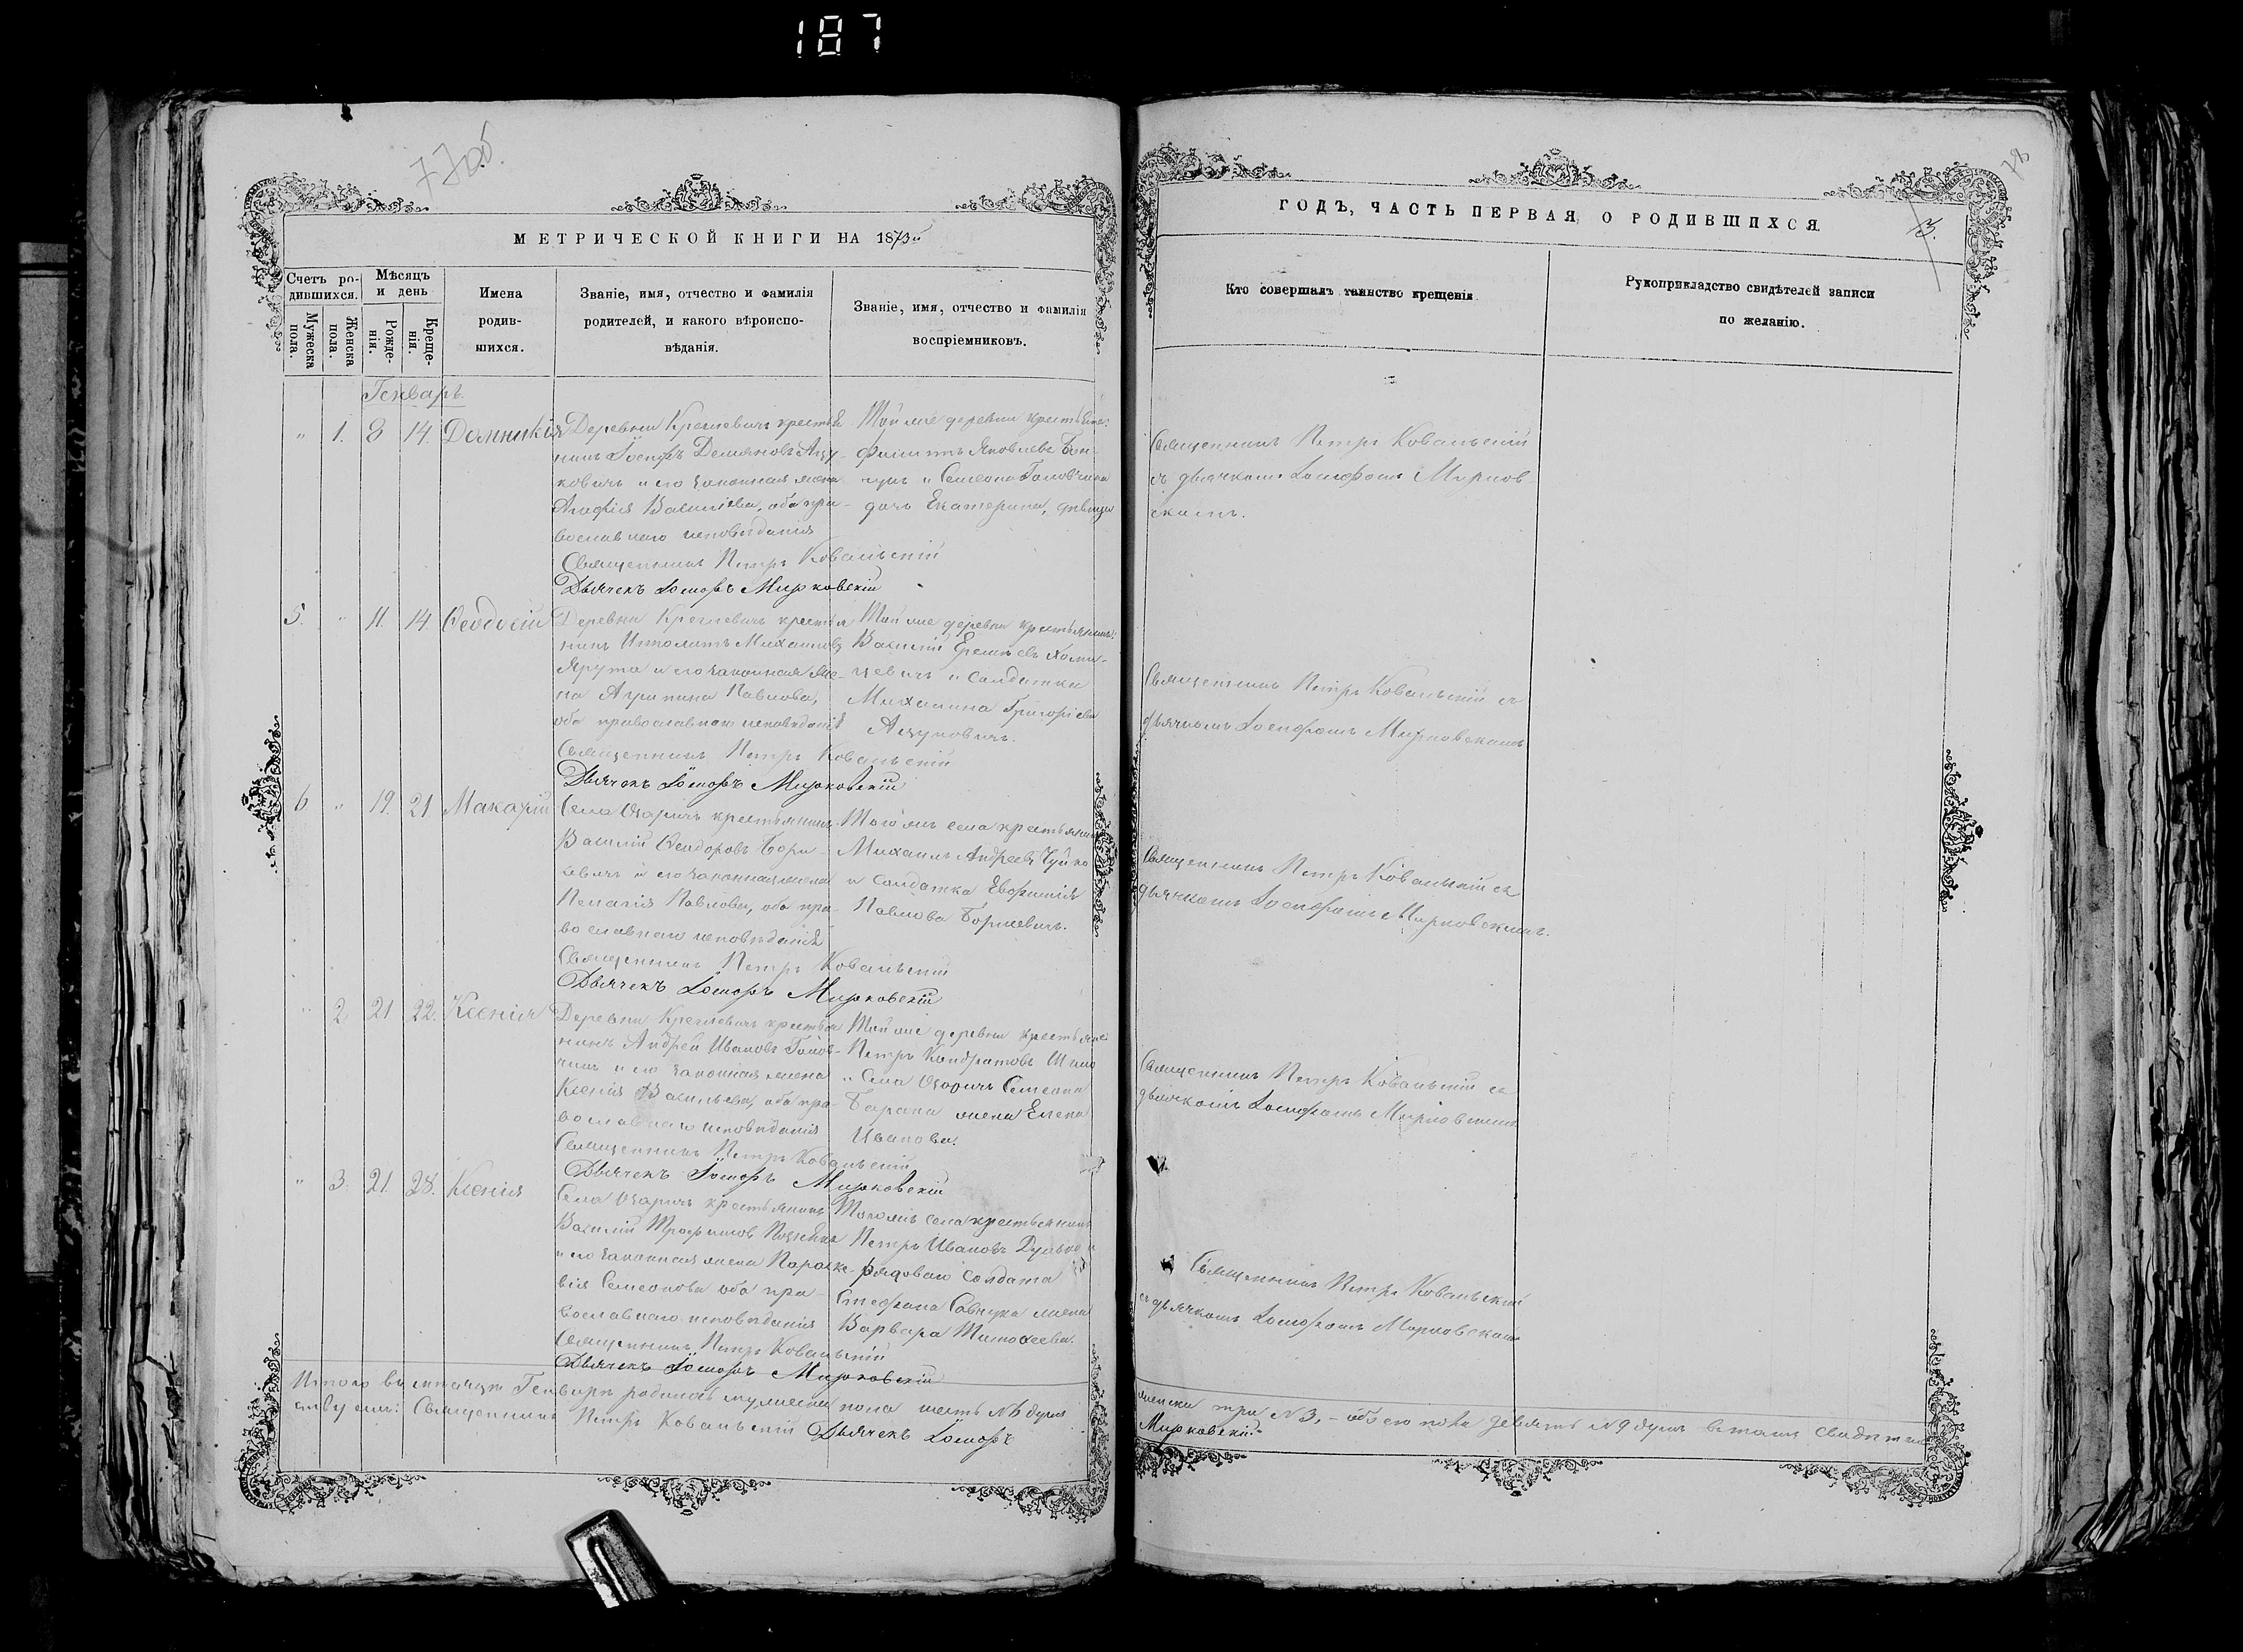 187
77об.
78
МЕТРИЧЕСКОЙ КНИГИ НА 1873й
Счетъ ро-
дившихся.
Мужеска
пола.
Женска
пола.
Мѣсяцъ
и день
Рожде-
нія.
Креще-
нія.
Имена
родив-
шихся.
Званіе, имя, отчество и фамилія
родителей, и какого вѣроиспо-
вѣданія.
Званіе, имя, отчество и фамилія
воспріемниковъ.
Генварь.
" 1. 8 14. Домникія
Деревни крестья
нинъ Іосифъ Демяновъ Ацу-
ковичъ и его законная жена
Агафія Василіева, оба пра-
вославнаго исповѣданія
Священникъ Петръ Ковальскій
Дьячекъ Іосифъ Мирковскій
Той же деревни
Яковлевъ
и Семеона
дочь Екатерина, дѣвица
5. " 11. 14. Ѳеодосій
Деревни крестья
нинъ Ипполитъ Михайловъ
Ярута и его законная же-
на Агрипина Павлова,
оба православнаго исповѣданія
Священникъ Петръ Ковальскій
Дьячекъ Іосифъ Мирковскій
Той же деревни крестьянинъ
Василій
и солдатка
Михалина Григоріева
Ацуковичъ.
6 " 19. 21 Макарій
Села Озаричъ крестьянинъ
Василій Ѳеодоровъ Бори-
севичъ и его законная жена
Пелагія Павлова, оба пра-
вославнаго исповѣданія
Священникъ Петръ Ковальскій
Дьячекъ Іосифъ Мирковскій
Того жъ села крестьянинъ
Михаилъ Андреевъ
и солдатка Евфимія
Павлова Борисевичъ.
" 2 21 22. Ксенія
Деревни крестья
нинъ Андрей Ивановъ Голов-
чикъ и его законная жена
Ксенія Васильева, оба пра-
вославнаго исповѣданія
Священникъ Петръ Ковальскій
Дьячекъ Іосифъ Мирковскій
Той же деревни
Петръ Кондратовъ
и Села Озаричъ Семеона
Барана жена Елена
Иванова.
" 3. 21. 28. Ксенія
Села Озаричъ крестьянинъ
Василій Трофимов
и его законная жена Параске-
вія Семеонова оба пра-
вославнаго исповѣданія
Священникъ Петръ Ковальскій
Дьячекъ Іосифъ Мирковскій
Того жъ села крестьянинъ
Петръ Ивановъ и
рядоваго солдата
Стефана жена
Варвара Тимоѳеева.
Итого въ мѣсяцѣ Генварѣ родилось мужеска пола шесть №6 душъ
Священникъ Петръ Ковальскій Дьячекъ Іосифъ
ГОДЪ, ЧАСТЬ ПЕРВАЯ, О РОДИВШИХСЯ
3.
Кто совершалъ таинство крещенія.
Рукоприкладство свидѣтелей записи
по желанію.
Священникъ Петръ Ковальскій
съ дьячкомъ Іосифомъ Мирков
скимъ.
Священникъ Петръ Ковальскій съ
дьячкомъ Іосифомъ Мирковскимъ
Священникъ Петръ Ковальскій съ
дьячкомъ Іосифомъ Мирковскимъ.
Священникъ Петръ Ковальскій съ
дьячкомъ Іосифомъ Мирковскимъ
Священникъ Петръ Ковальскій
съ дьячкомъ Іосифомъ Мирковскимъ
женска три №3, – обоего пола девять №9 душъ
Мирковскій